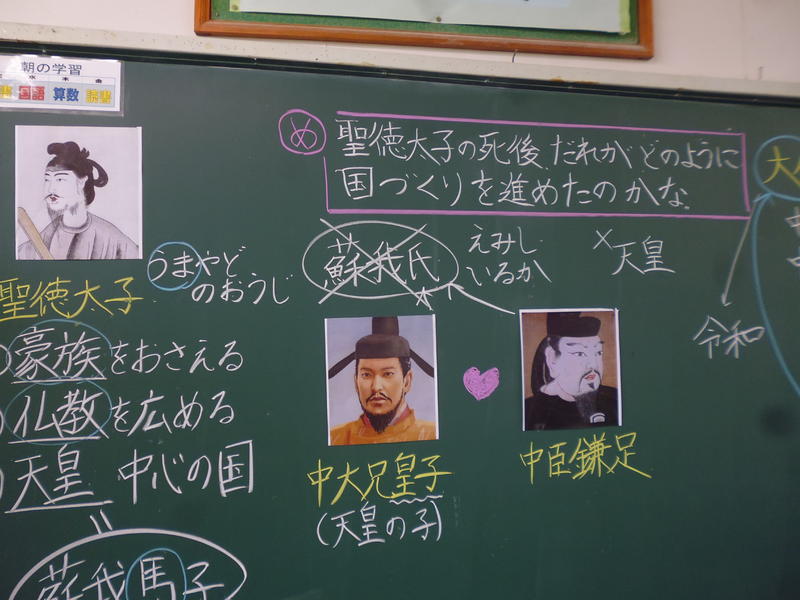 朝の学習
水 木 金
国語 算数 読書
め
聖徳太子の死後、だれがどのように
国づくりを進めたのかな。
聖徳太子
うまやど
のおうじ
豪族をおさえる
仏教を広める
天皇 中心の国
蘇我馬子
蘇我氏
えみし
いるか
×天皇
中大兄皇子
(天皇の子)
中臣鎌足
令和